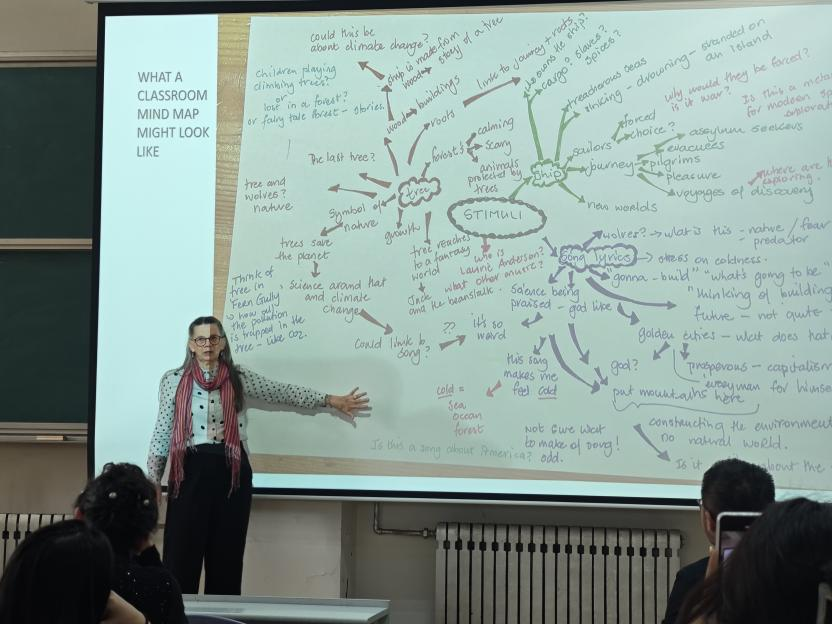 WHAT A
CLASSROOM
MIND MAP
MIGHT LOOK
LIKE
could this be
about climate change?
ship is made from
wood → story of a tree
children playing
climbing trees?
or
lost in a forest?
or fairy tale forest - stories.
wood → buildings
roots
link to journey + roots
who owns the ship?
cargo? slaves?
spices?
treacherous seas
sinking - drowning - stranded on
an island
why would they be forced?
is it war?
Is this a
for modern
forced
choice?
sailors
journey
asylum seekers
evacuees
pilgrims
pleasure
voyages of discovery
where are
exploring
new worlds
ship
The last tree?
forests
calming
scary
animals
protected by
trees
tree
tree and
wolves?
nature
symbol of
nature
growth
trees save
the planet
tree reaches
to a fantasy
world
Jack
and the beanstalk.
STIMULI
who is
Laurie Anderson?
what other music?
Song lyrics
wolves? → what is this - native / fear
- predator
stress on coldness.
"gonna - build" "what's going to be"
"thinking of building
future - not quite
Science being
praised - god like
golden cities - what does
god?
prosperous - capitalism
everyman for himself
put mountains here
constructing the environment
no natural world.
Is it about the
Think of
tree in
Fern Gully
→ how all
the pollution
is trapped in the
tree - like CO2.
Science around that
and climate
change
could link to
song?
??
it's so
weird
this song
makes me
feel cold
cold =
sea
ocean
forest
Not sure what
to make of song!
odd.
Is this a song about America?